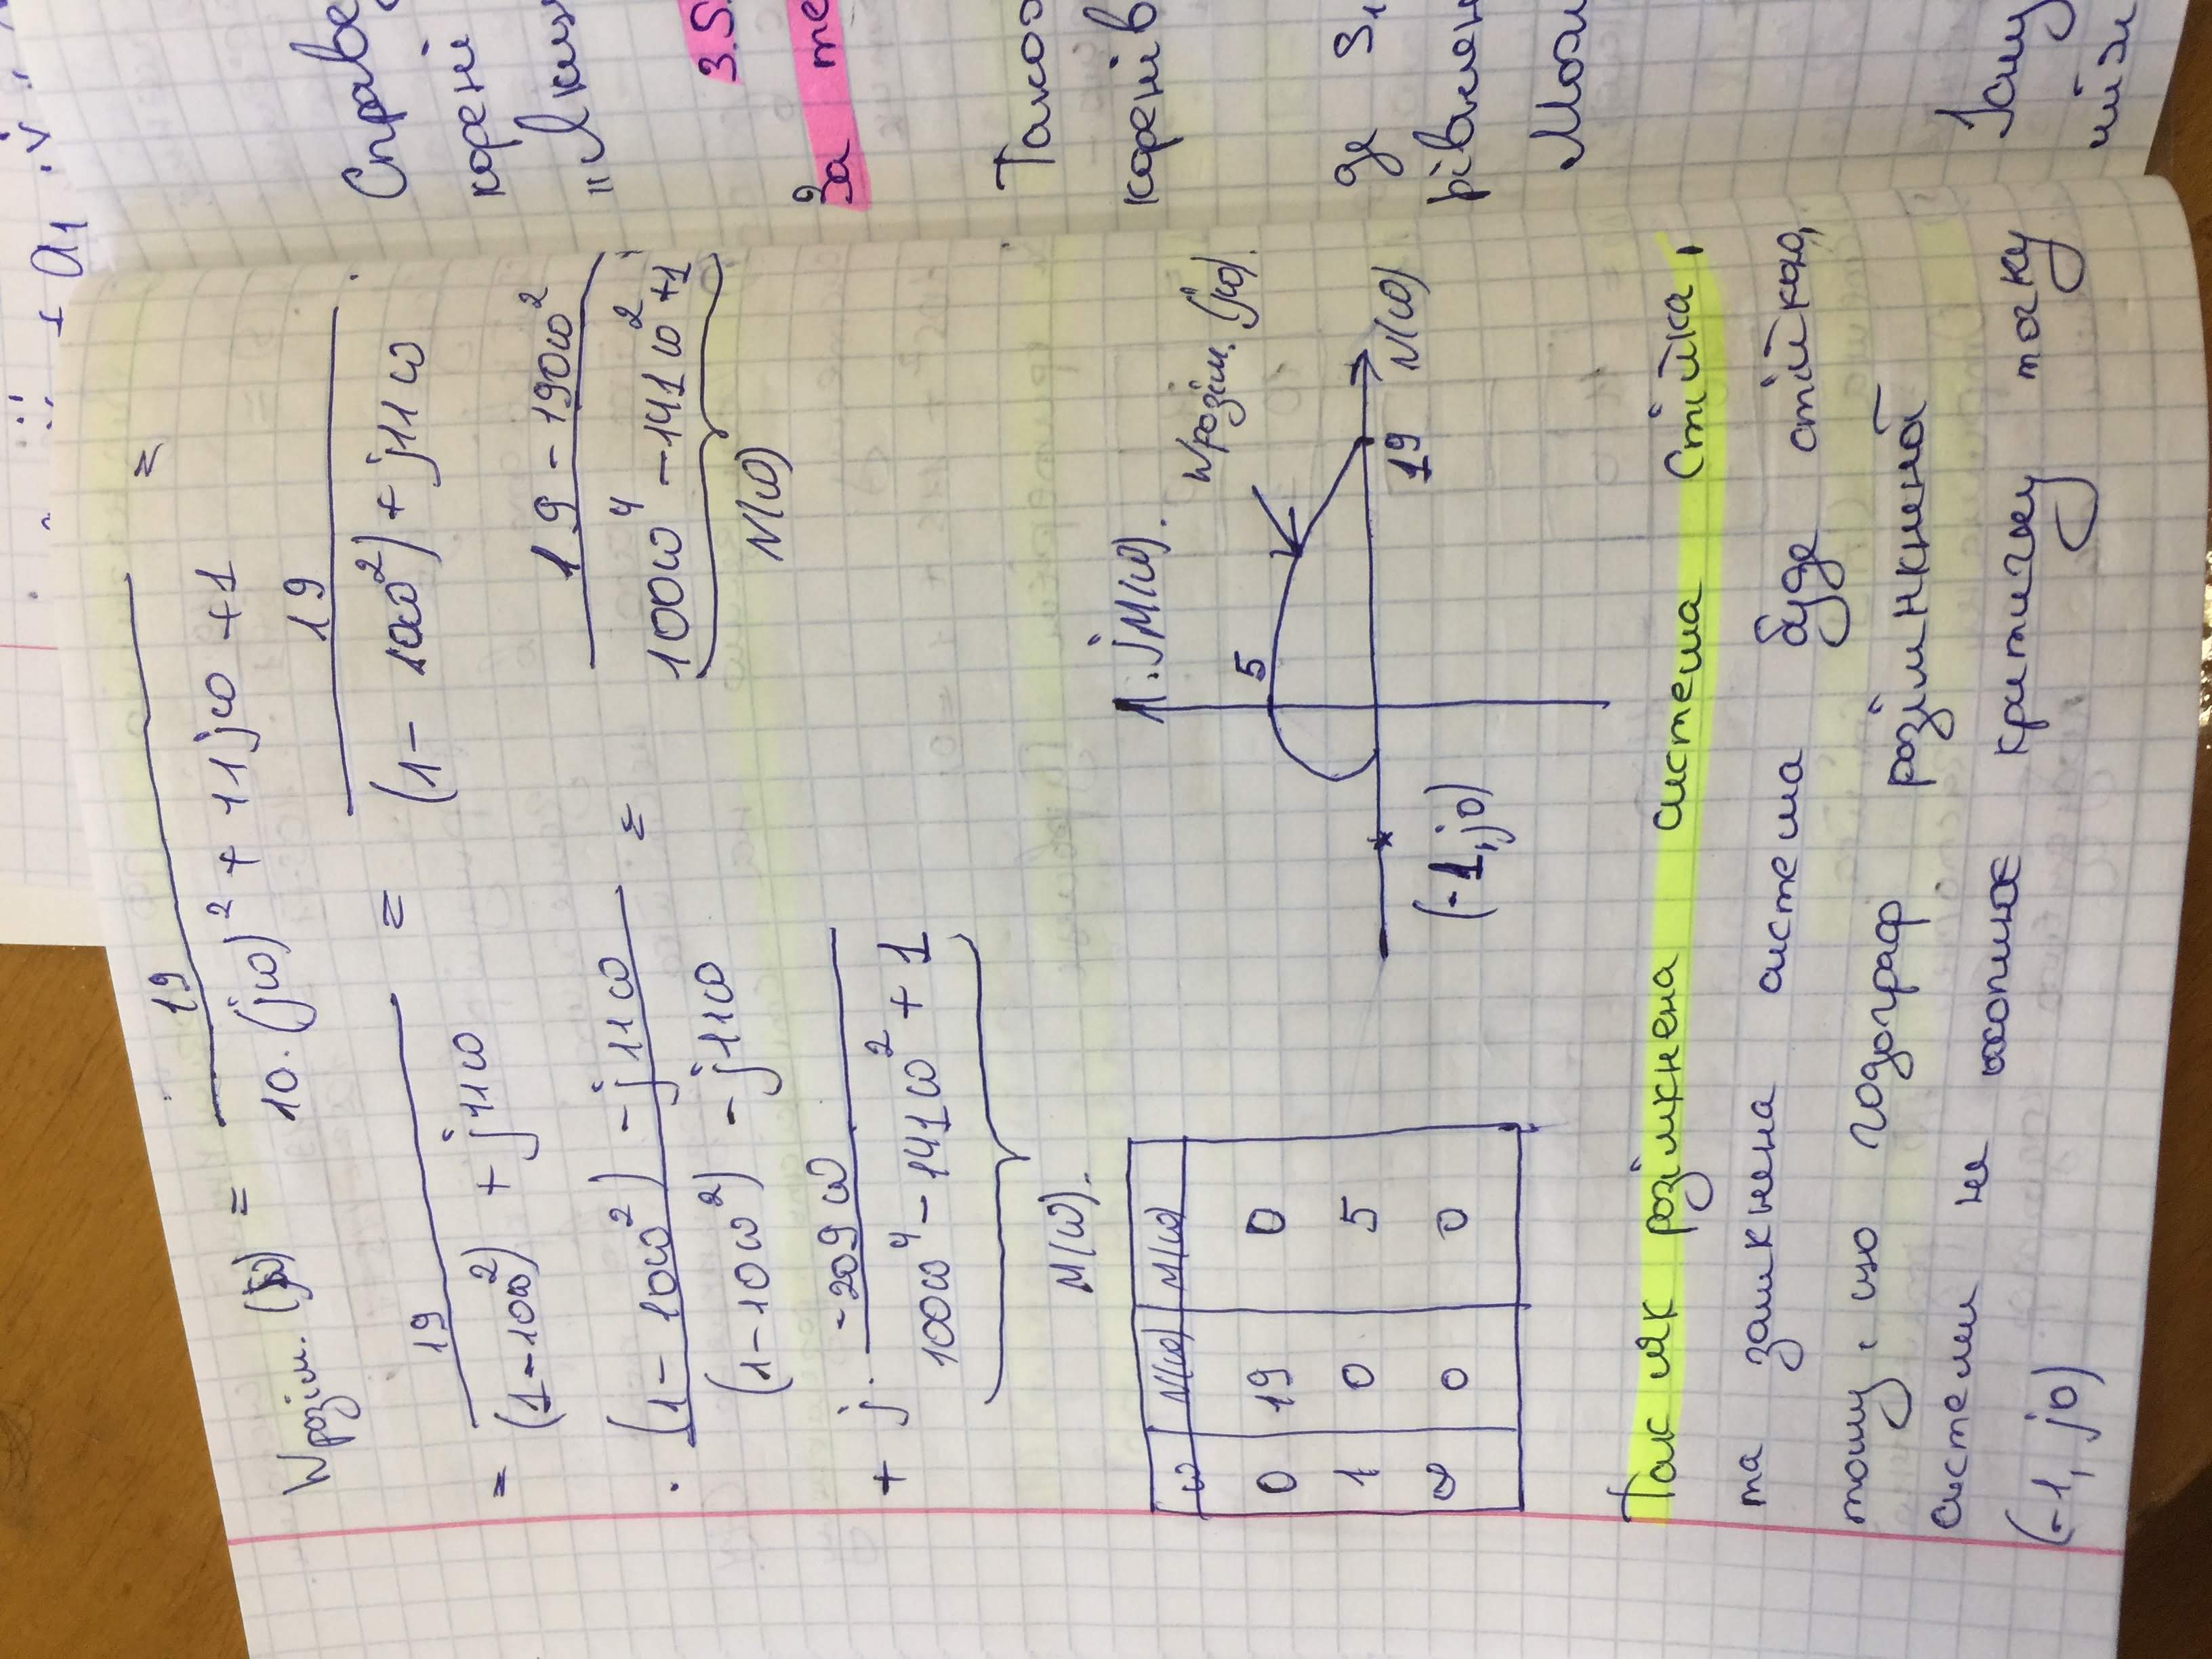 + a₁
Wрозім. (jω) = 19 / (10·(jω)² + 11jω + 1) =
= 19 / ((1-10ω²) + j11ω) = 19 / ((1-10ω²) + j11ω) ·
· ((1-10ω²) - j11ω) / ((1-10ω²) - j11ω) = (19 - 190ω²) / (100ω⁴ - 141ω² + 1)
N(ω)
+ j· (-209ω) / (100ω⁴ - 141ω² + 1)
M(ω).
ω N(ω) M(ω)
0 19 0
1 0 5
∞ 0 0
jM(ω).
Wрозім. (jω).
5
19 N(ω)
(-1, j0)
Так як розімкнена система стійка,
та замкнена система буде стійкою,
тому, що годограф розімнкненої
системи не охоплює критичну точку
(-1, j0)
корені
3.5.
За
коренів
де S₁